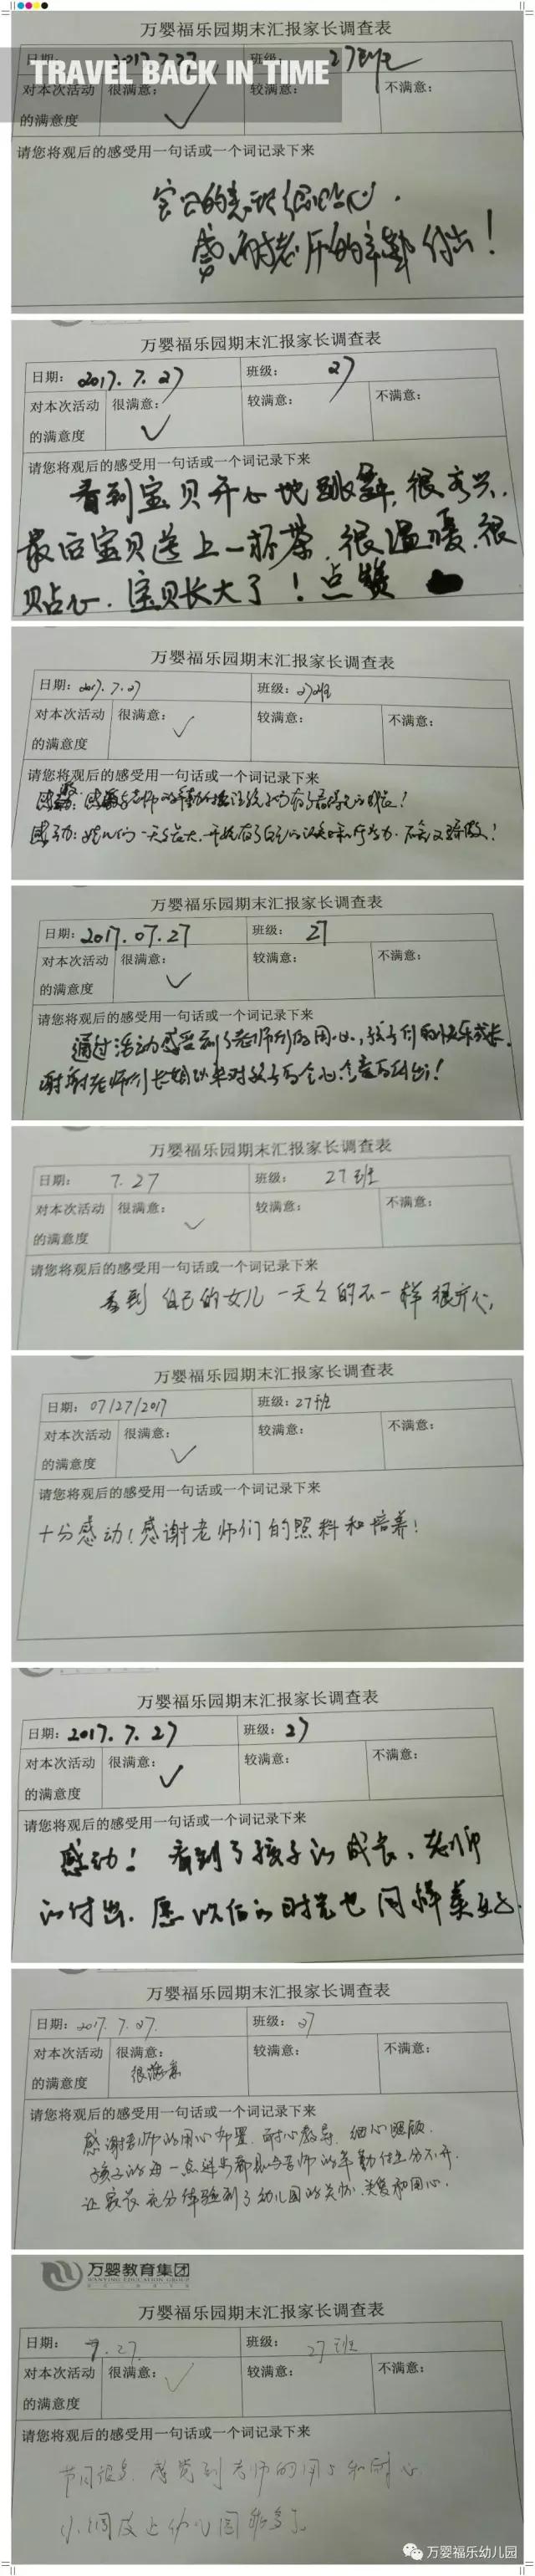 万婴福乐园期末汇报家长调查表
TRAVEL BACK IN TIME
日期: 2017.7.27 班级: 27班
对本次活动 很满意: 较满意: 不满意:
的满意度 ✓
请您将观后的感受用一句话或一个词记录下来
宝贝的表演很
感谢老师的辛勤付出!
万婴福乐园期末汇报家长调查表
日期: 2017.7.27 班级: 27
对本次活动 很满意: 较满意: 不满意:
的满意度 ✓
请您将观后的感受用一句话或一个词记录下来
看到宝贝开心地跳舞,很高兴,
最后宝贝送上一杯茶,很温暖,很
贴心.宝贝长大了!点赞
万婴福乐园期末汇报家长调查表
日期: 2017.7.27 班级: 27班
对本次活动 很满意: 较满意: 不满意:
的满意度 ✓
请您将观后的感受用一句话或一个词记录下来
感激:感激老师的辛勤付出让孩子们有了
感动:
万婴福乐园期末汇报家长调查表
日期: 2017.07.27 班级: 27
对本次活动 很满意: 较满意: 不满意:
的满意度 ✓
请您将观后的感受用一句话或一个词记录下来
通过活动感受到了老师们的用心,孩子们的快乐成长.
谢谢老师们长期以来对孩子的全心全意的付出!
万婴福乐园期末汇报家长调查表
日期: 7.27 班级: 27班
对本次活动 很满意: 较满意: 不满意:
的满意度 ✓
请您将观后的感受用一句话或一个词记录下来
看到自己的女儿一天天的不一样很开心,
万婴福乐园期末汇报家长调查表
日期: 07/27/2017 班级: 27班
对本次活动 很满意: 较满意: 不满意:
的满意度 ✓
请您将观后的感受用一句话或一个词记录下来
十分感动!感谢老师们的照料和培养!
万婴福乐园期末汇报家长调查表
日期: 2017.7.27 班级: 27
对本次活动 很满意: 较满意: 不满意:
的满意度 ✓
请您将观后的感受用一句话或一个词记录下来
感动!看到了孩子的成长,老师
的付出.愿以后的时光也同样美好.
万婴福乐园期末汇报家长调查表
日期: 2017.7.27. 班级: 27
对本次活动 很满意: 较满意: 不满意:
的满意度 很满意
请您将观后的感受用一句话或一个词记录下来
感谢老师的用心布置.耐心教导.细心照顾.
孩子的每一点进步都与老师的辛勤付出分不开.
让家长充分体验到了幼儿园的关怀.关爱和用心.
万婴教育集团
WANYING EDUCATION GROUP
万婴福乐园期末汇报家长调查表
日期: 7.27. 班级: 27班
对本次活动 很满意: 较满意: 不满意:
的满意度 ✓
请您将观后的感受用一句话或一个词记录下来
节目很多,感觉到老师的用心和耐心.
小朋友上幼儿园
万婴福乐幼儿园